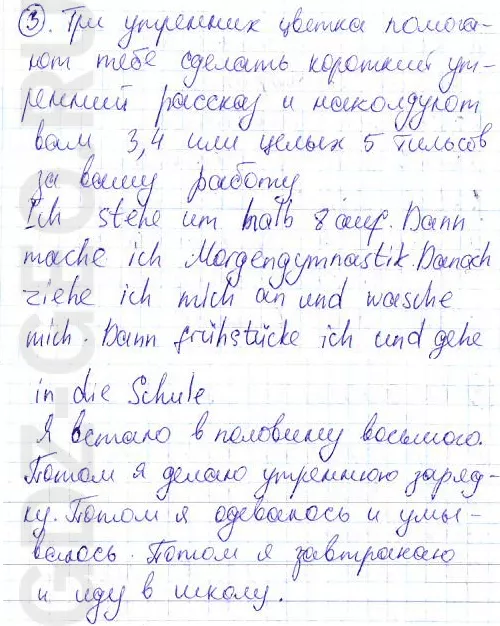 ③. Три утренних цветка помога-
ют тебе сделать короткий ут-
ренний рассказ и наколдуют
вам 3,4 или целых 5 тильсов
за вашу работу
Ich stehe um halb 8 auf. Dann
mache ich Morgengymnastik. Danach
ziehe ich mich an und wasche
mich. Dann frühstücke ich und gehe
in die Schule.
Я встаю в половину восьмого.
Потом я делаю утреннюю заряд-
ку. Потом я одеваюсь и умы-
ваюсь. Потом я завтракаю
и иду в школу.
GDZ-GFC.RU